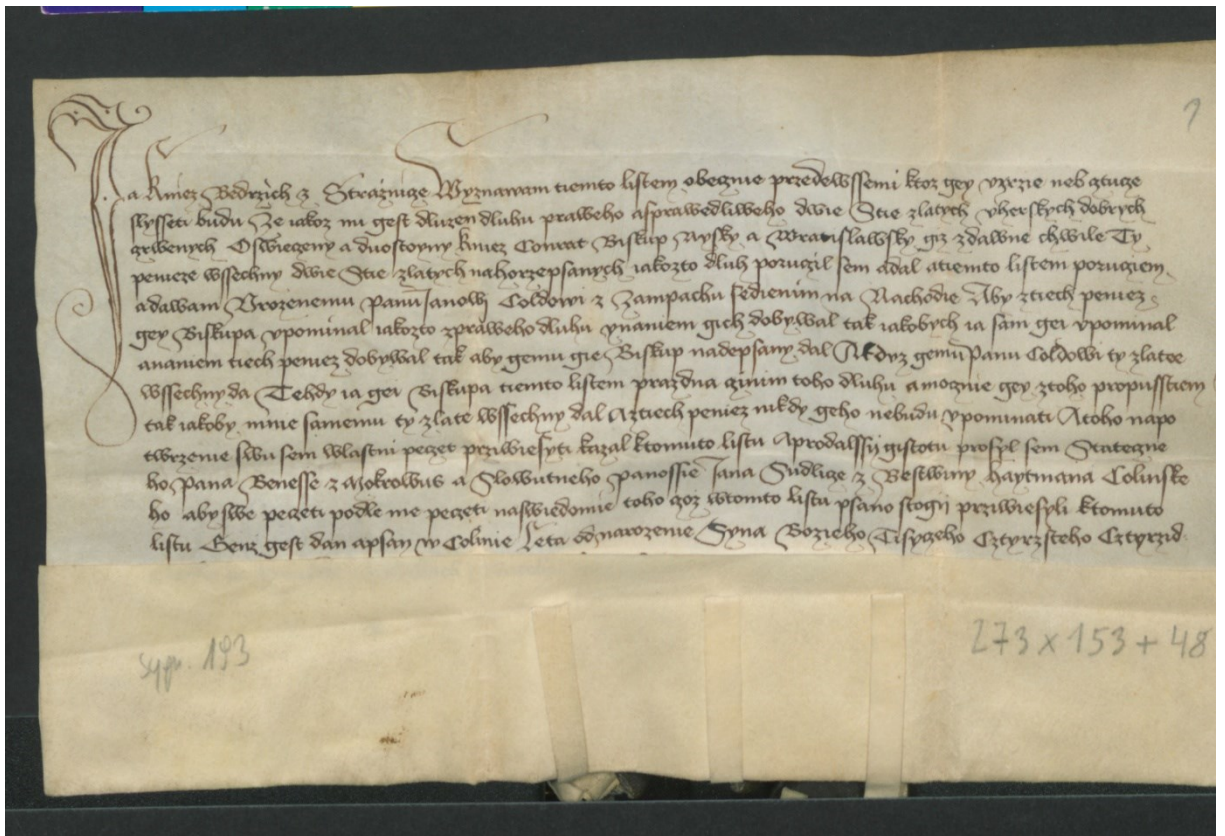 Ja kniez Bedrzich z Straznicze Wyznawam tiemto listem obecznie przedewssemi ktoz gey vzrzie neb cztucze
slysseti budu Ze iakoz mi gest dluzen dluhu praweho asprawedliweho dwie Stie zlatych vherskych dobrych
czrwenych Oswieczeny a duostoyny kniez Conrat Biskup Nysky a Wratislawsky giz zdawne chwile Ty
penieze wssechny dwie Stie zlatych nahorzepsanych iakozto dluh poruczil sem adal atiemto listem porucziem
adawam Vrozenemu panu Janowi Coldowi z Zampachu sedieniem na Nachodie Aby ztiech peniez
gey Biskupa vpominal iakozto zpraweho dluhu ynaniem gich dobywal tak iakobych ia sam gei vpominal
ananiem tiech peniez dobywal tak aby gemu gie Biskup nadepsany dal A kdyz gemu panu Coldowi ty zlatee
wssechny da Tehdy ia gei Biskupa tiemto listem prazdna czinim toho dluhu amocznie gey ztoho propusstiem
tak iakoby mnie samemu ty zlate wssechny dal Aztiech peniez nikdy geho nebudu vpominati Atoho napo
twrzenie swu sem wlastni peczet prziwiesyti kazal ktomuto listu Aprodalssy gistotu prosyl sem Stateczne
ho Pana Benesse z Mokrowus a Slowutneho panossie Jana Sudlicze z Bestwiny haytmana Colinske
ho aby swe peczeti podle me peczeti naswiedomie toho czoz wtomto listu psano stogij prziwiesyli ktomuto
listu Genz gest dan apsan w Colinie Leta od narozenie Syna Bozieho Tisyczeho Cztyrzsteho Cztyrzid
sygn. 193
273 x 153 + 48